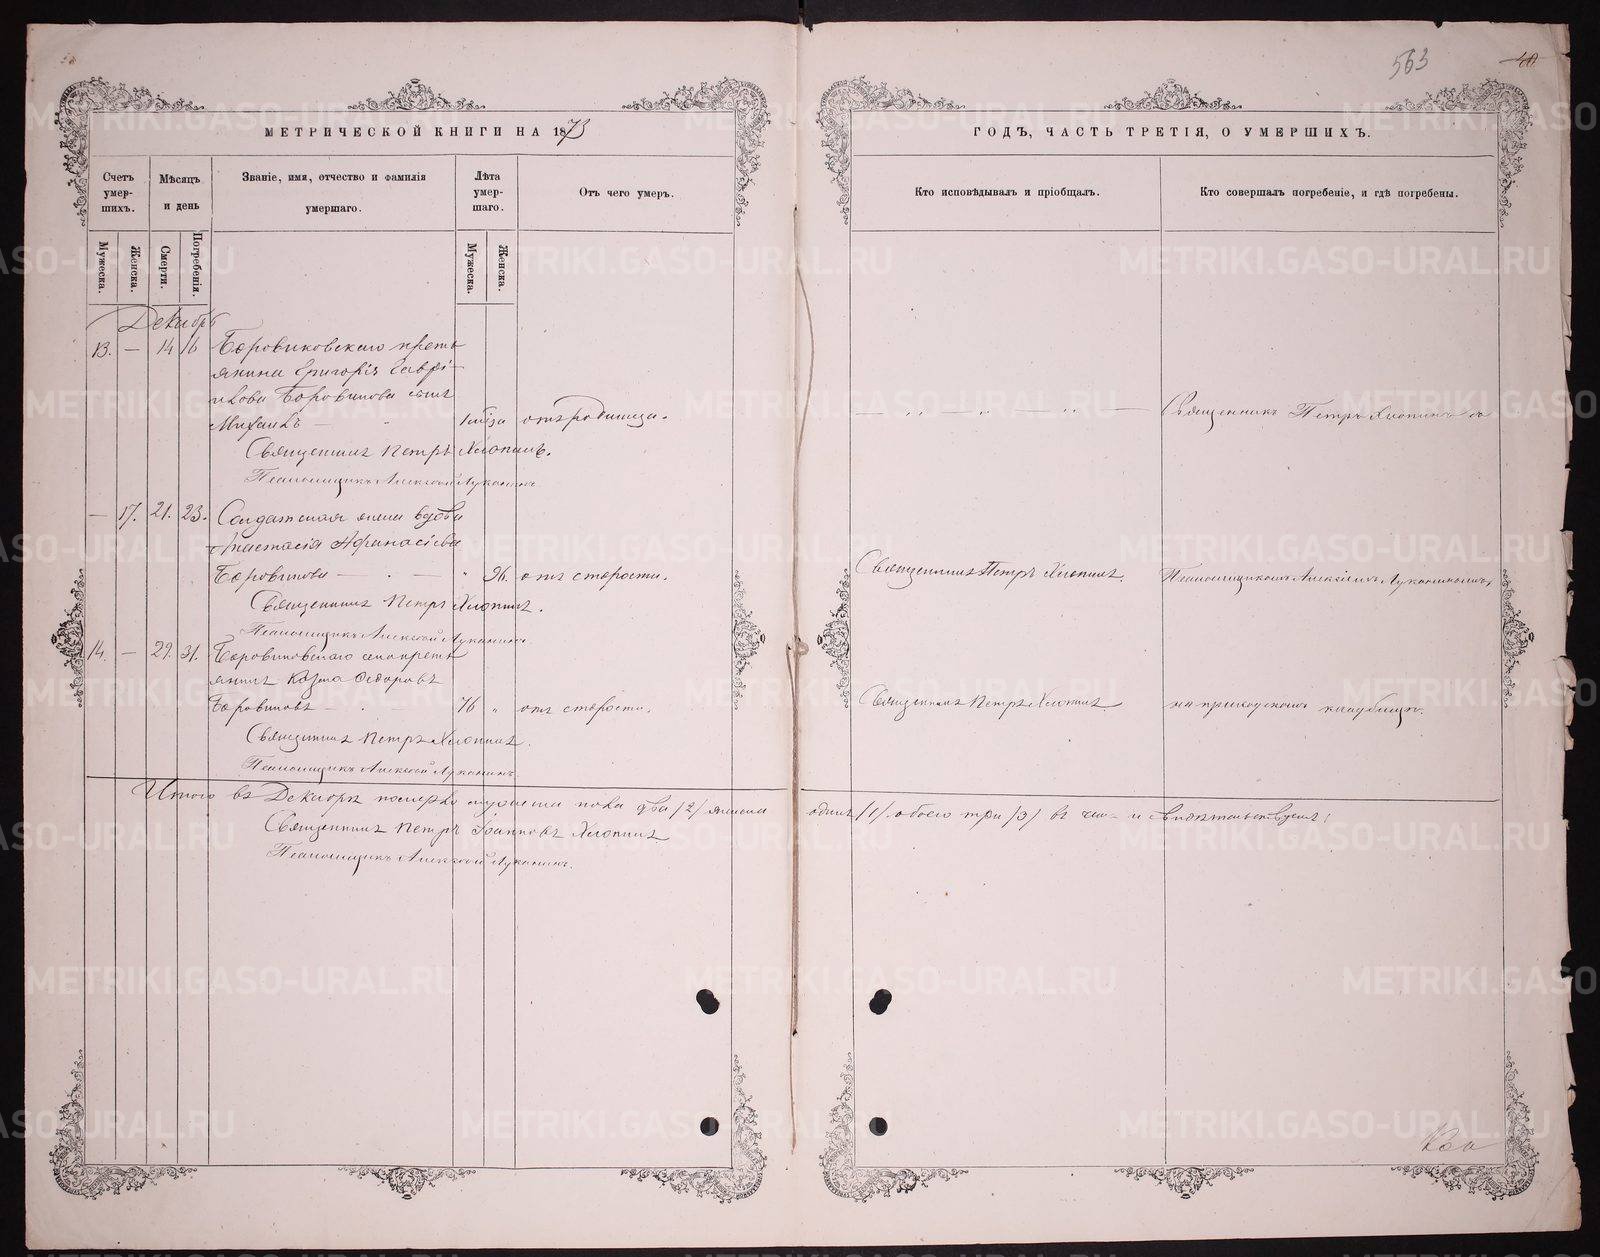 563
40
МЕТРИЧЕСКОЙ КНИГИ НА 1873
ГОДЪ, ЧАСТЬ ТРЕТІЯ, О УМЕРШИХЪ.
Счетъ умер-
шихъ.
Мѣсяцъ
и день
Званіе, имя, отчество и фамилія
умершаго.
Лѣта
умер-
шаго.
Отъ чего умеръ.
Кто исповѣдывалъ и пріобщалъ.
Кто совершалъ погребеніе, и гдѣ погребены.
Мужеска.
Женска.
Смерти.
Погребенія.
Мужеска.
Женска.
Декабрь
13. — 14 16 Боровиковскаго кресть
янина Григорія Гаврі-
илова Боровикова сынъ
Михаилъ — отъ родимца.
Священникъ Петръ Хлопинъ
Священникъ Петръ Хлопинъ.
Псаломщикъ Алексѣй Луканинъ
— 17. 21. 23. Солдатская жена вдова
Анастасія Афанасіева
Боровикова — " 96. отъ старости.
Священникъ Петръ Хлопинъ.
Псаломщикомъ Алексіемъ Луканинымъ
Священникъ Петръ Хлопинъ.
Псаломщикъ Алексѣй Луканинъ.
14. — 29. 31. Боровиковскаго села кресть
янинъ Козма Ѳедоровъ
Боровиковъ — 76 " отъ старости.
Священникъ Петръ Хлопинъ
на приходскомъ кладбищѣ.
Священникъ Петръ Хлопинъ.
Псаломщикъ Алексѣй Луканинъ.
Итого въ Декабрѣ померло мужеска пола два /2/ женска одинъ /1/ обоего три /3/ въ чемъ и свидѣтельствуемъ:
Священникъ Петръ Іоанновъ Хлопинъ
Псаломщикъ Алексѣй Луканинъ.
METRIKI.GASO-URAL.RU